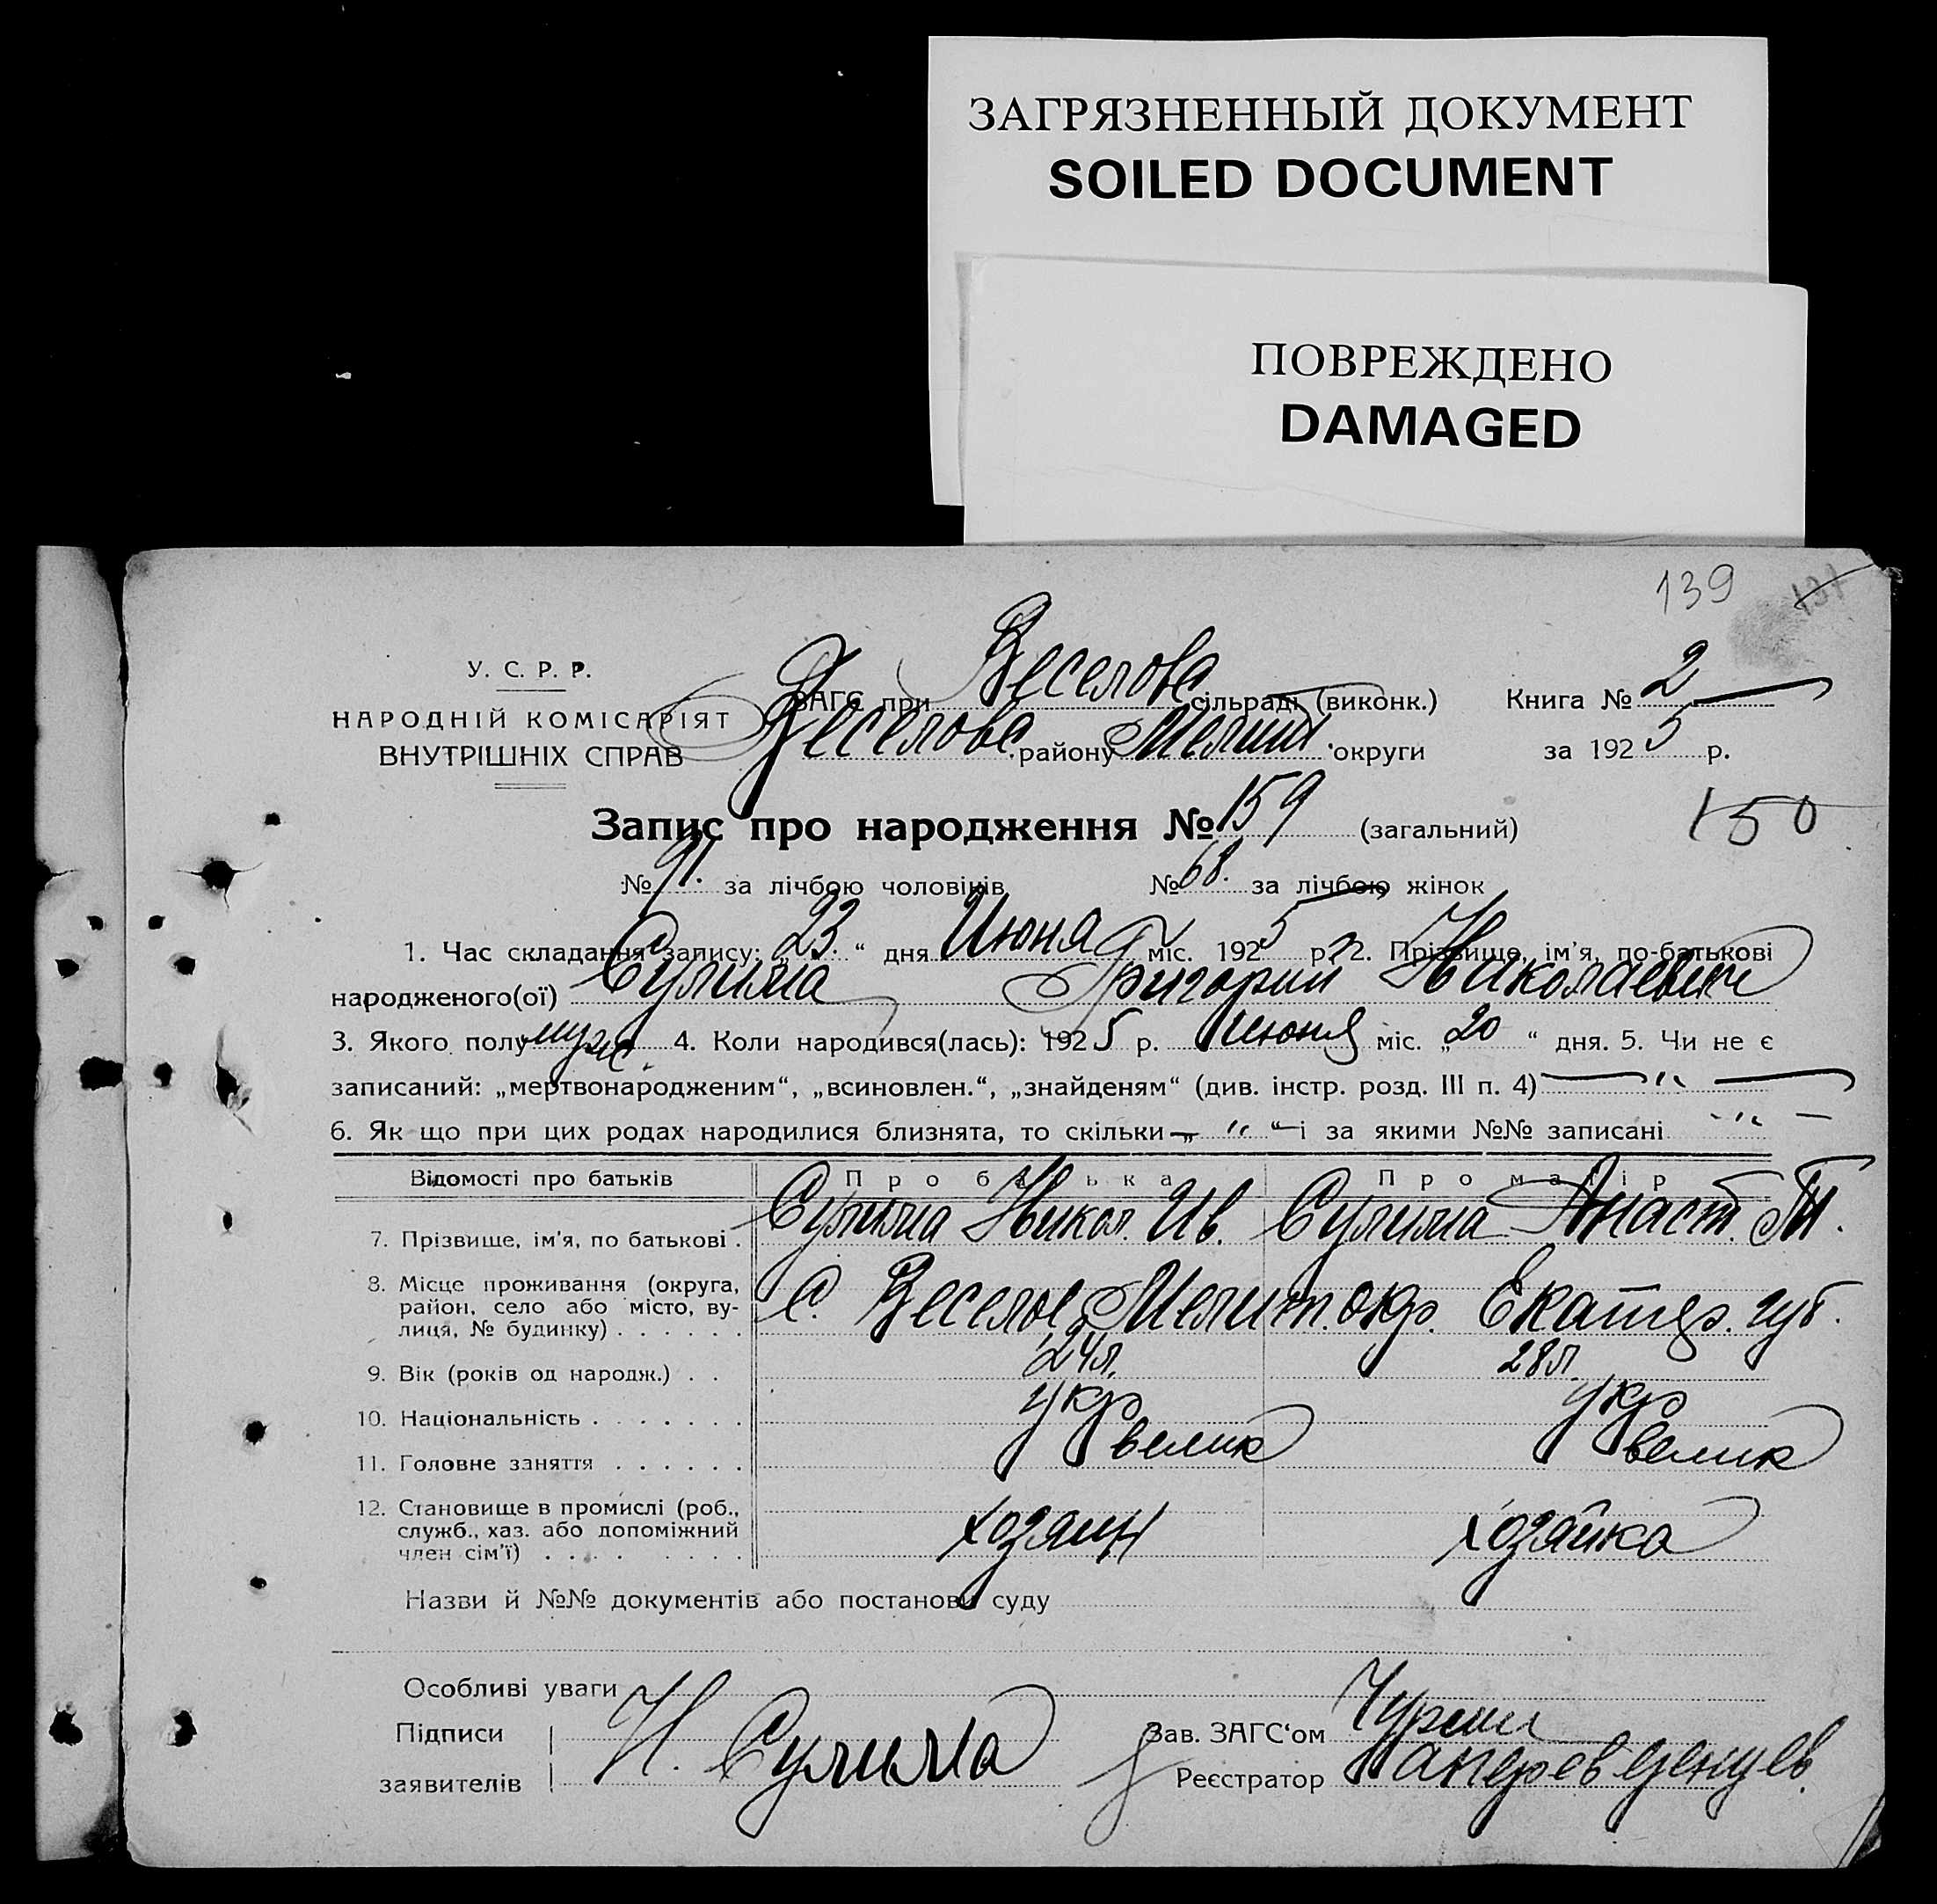 ЗАГРЯЗНЕННЫЙ ДОКУМЕНТ
SOILED DOCUMENT
ПОВРЕЖДЕНО
DAMAGED
139
У. С. Р. Р.
НАРОДНІЙ КОМІСАРІЯТ
ВНУТРІШНІХ СПРАВ
ЗАГС при Веселовс сільраді (виконк.)
Веселовс району Мелит. округи
Книга № 2
за 1925 р.
Запис про народження № 159 (загальний)
150
№ 91. за лічбою чоловіків № 68. за лічбою жінок
1. Час складання запису: „23.“ дня Июня міс. 1925 р. 2. Прізвище, ім'я, по-батькові
народженого(ої) Сулима Григорий Николаевич
3. Якого полу муж. 4. Коли народився(лась): 1925 р. Июня міс. „20“ дня. 5. Чи не є
записаний: „мертвонародженим“, „всиновлен.“, „знайденям“ (див. інстр. розд. III п. 4) — " —
6. Як що при цих родах народилися близнята, то скільки — " — і за якими №№ записані - " -
Відомості про батьків Про батька Про матір
7. Прізвище, ім'я, по батькові . Сулима Никол. Ив. Сулима Анаст. П.
8. Місце проживання (округа,
район, село або місто, ву-
лиця, № будинку) . . . . . . С. Веселое, Мелит. окр. Екатер. губ.
9. Вік (років од народж.) . . 24л. 28л.
10. Національність . . . . . . . укр укр
11. Головне заняття . . . . . .
12. Становище в промислі (роб.,
служб., хаз. або допоміжний
член сім'ї) . . . . . . . . хозяин хозяйка
Назви й №№ документів або постанови суду
Особливі уваги
Підписи
заявителів
Н. Сулима
Зав. ЗАГС'ом
Реєстратор